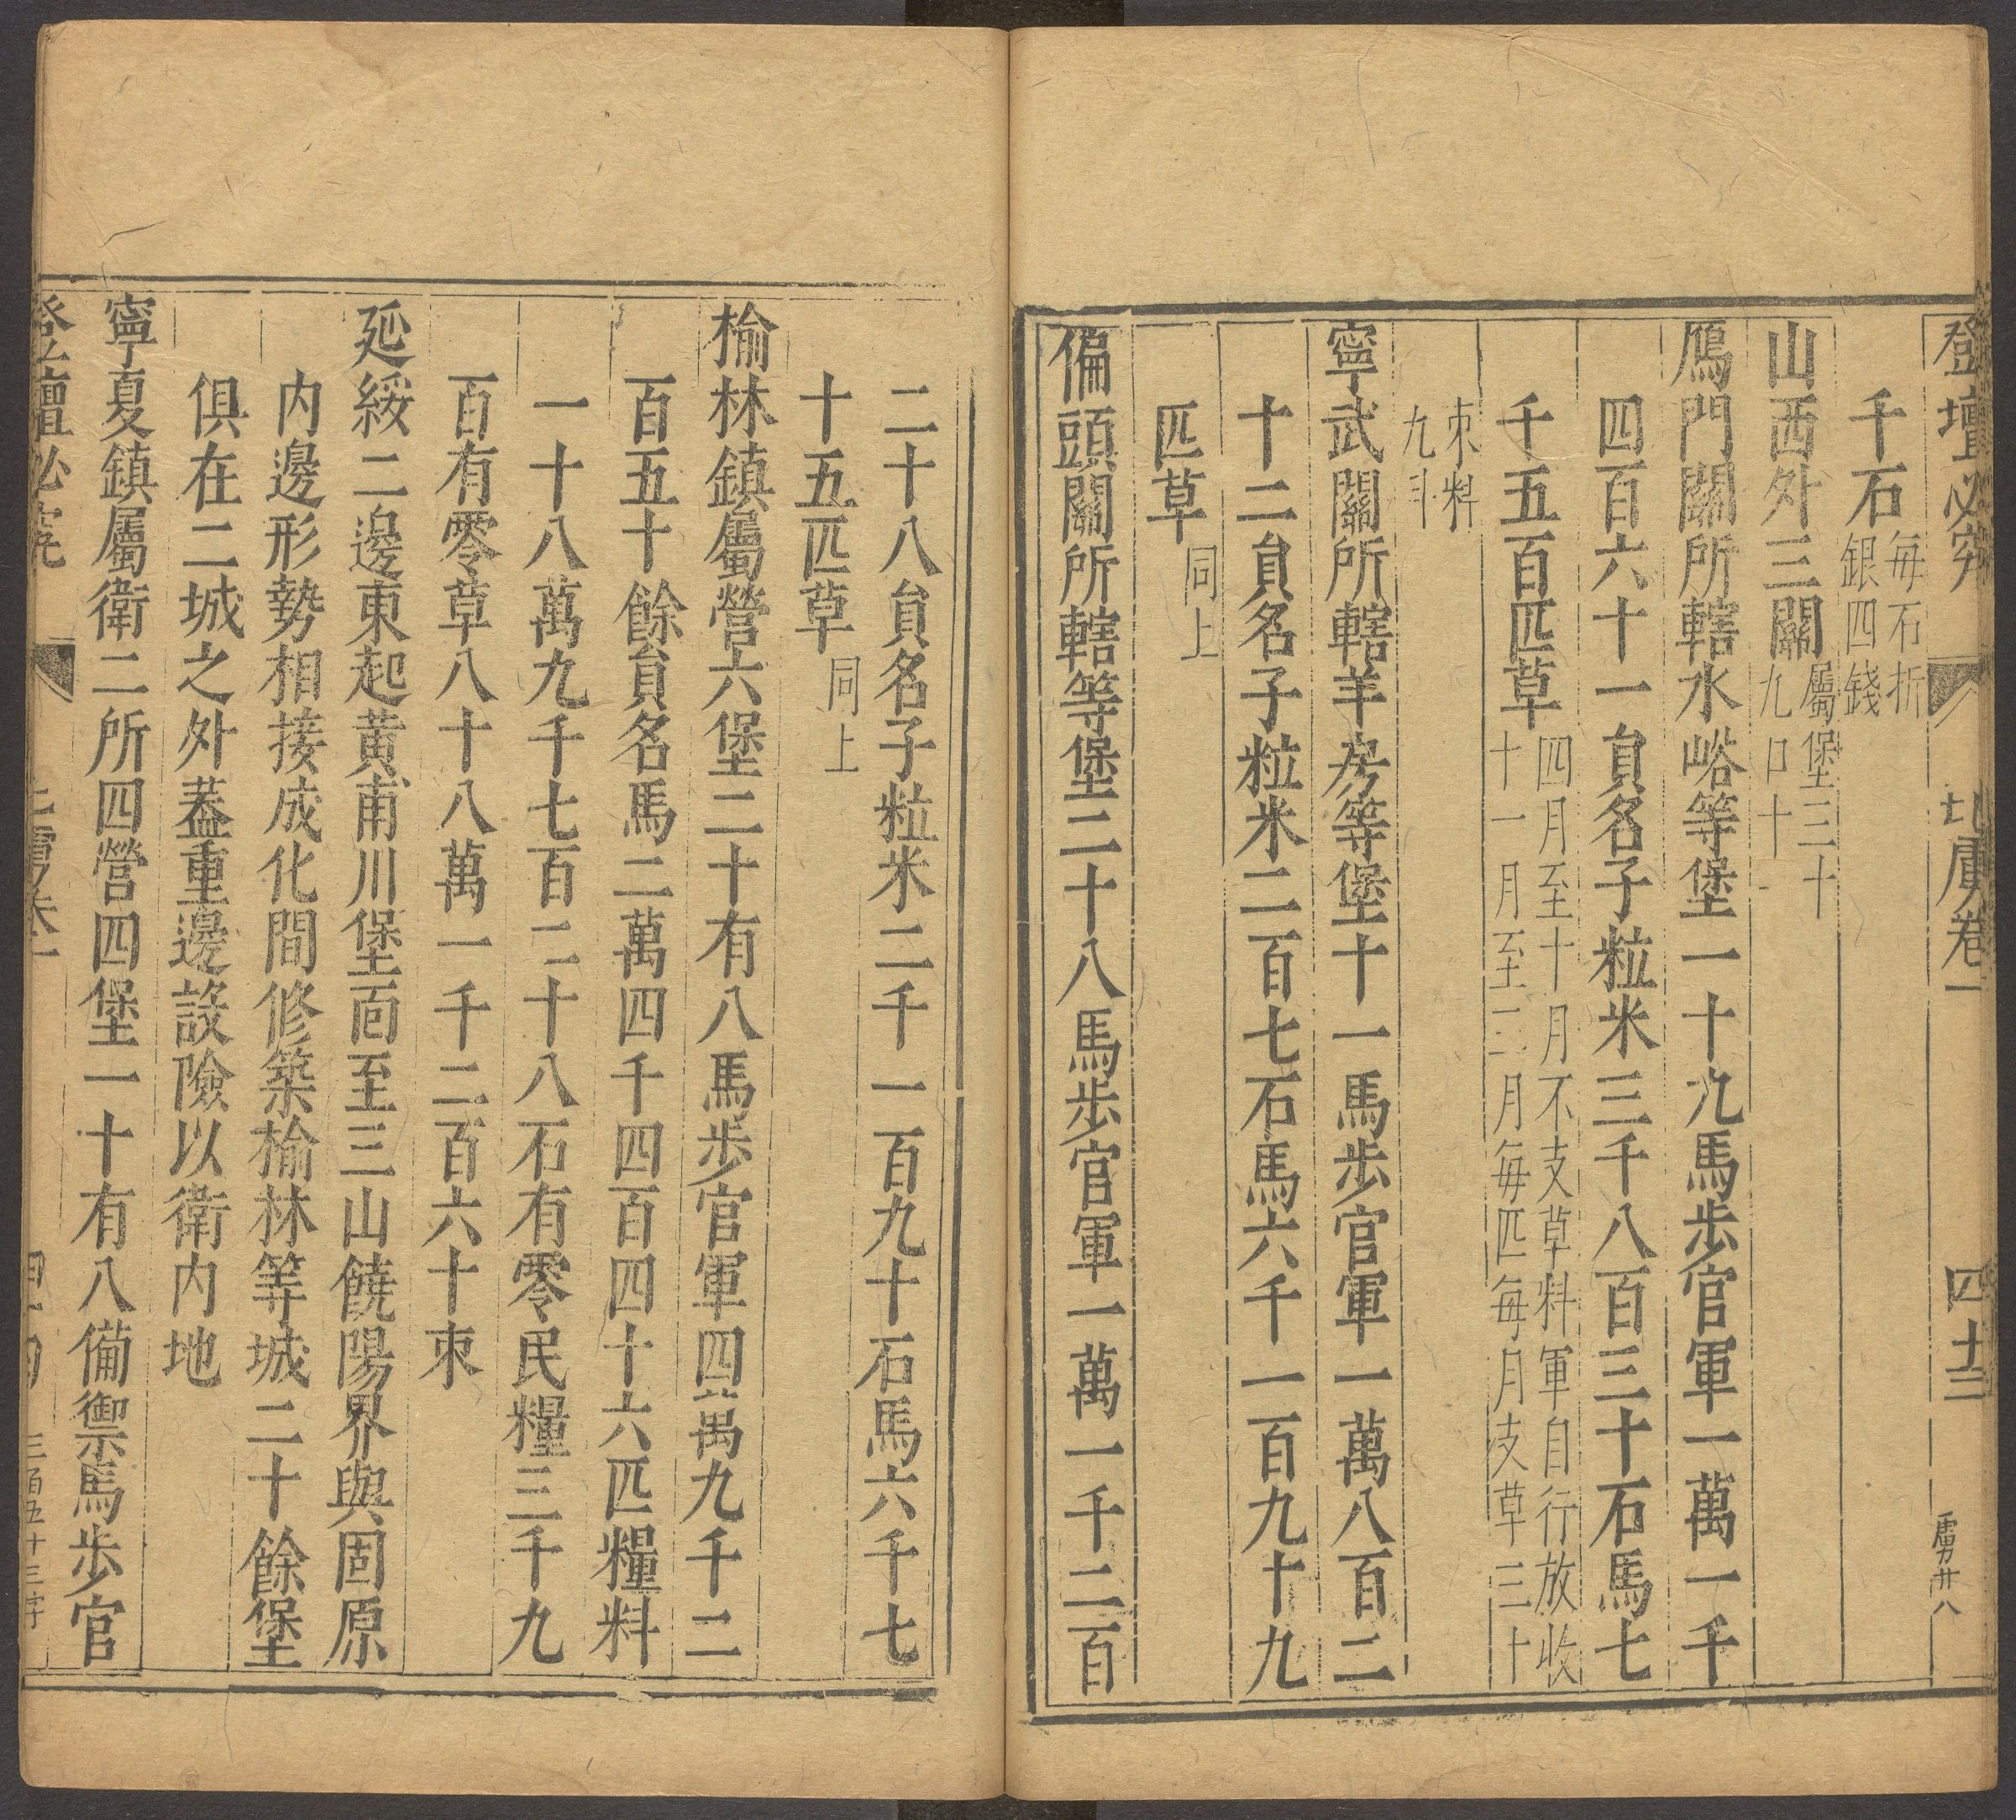 登壇必究 北虜卷一 四十三 虜廿八
千石每石折銀四錢
山西外三關屬堡三十九口十一
鴈門關所轄水峪等堡一十九馬步官軍一萬一千
四百六十一負名子粒米三千八百三十石馬七
千五百匹草四月至十月不支草料軍自行放收十一月至三月每匹每月支草三十
束料九斗
寧武關所轄羊房等堡十一馬步官軍一萬八百二
十二負名子粒米二百七石馬六千一百九十九
匹草同上
偏頭關所轄等堡二十八馬步官軍一萬一千二百
二十八負名子粒米二千一百九十石馬六千七
十五匹草同上
榆林鎮屬營六堡二十有八馬步官軍四萬九千二
百五十餘負名馬二萬四千四百四十六匹糧料
一十八萬九千七百二十八石有零民糧三千九
百有零草八十八萬一千二百六十束
延綏二邊東起黃甫川堡靣至三山饒陽界與固原
內邊形勢相接成化間修築榆林等城二十餘堡
俱在二城之外蓋重邊設險以衛內地
寧夏鎮屬衛二所四營四堡一十有八備禦馬步官
登壇必究 北虜卷一 三百五十三字